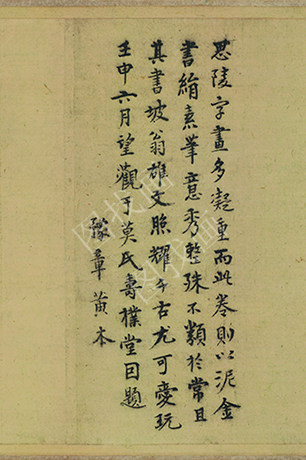 思陵字畫多凝重而此卷則以泥金
書絹素筆意秀整殊不類於常且
其書坡翁雄文照耀千古尤可愛玩
壬申六月望觀于莫氏壽樸堂因題
豫章黃本